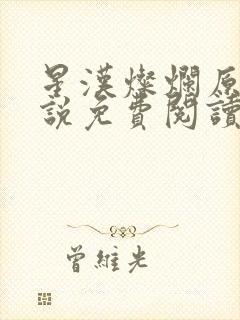 星漢燦爛原
説免費閱讀
曾維光